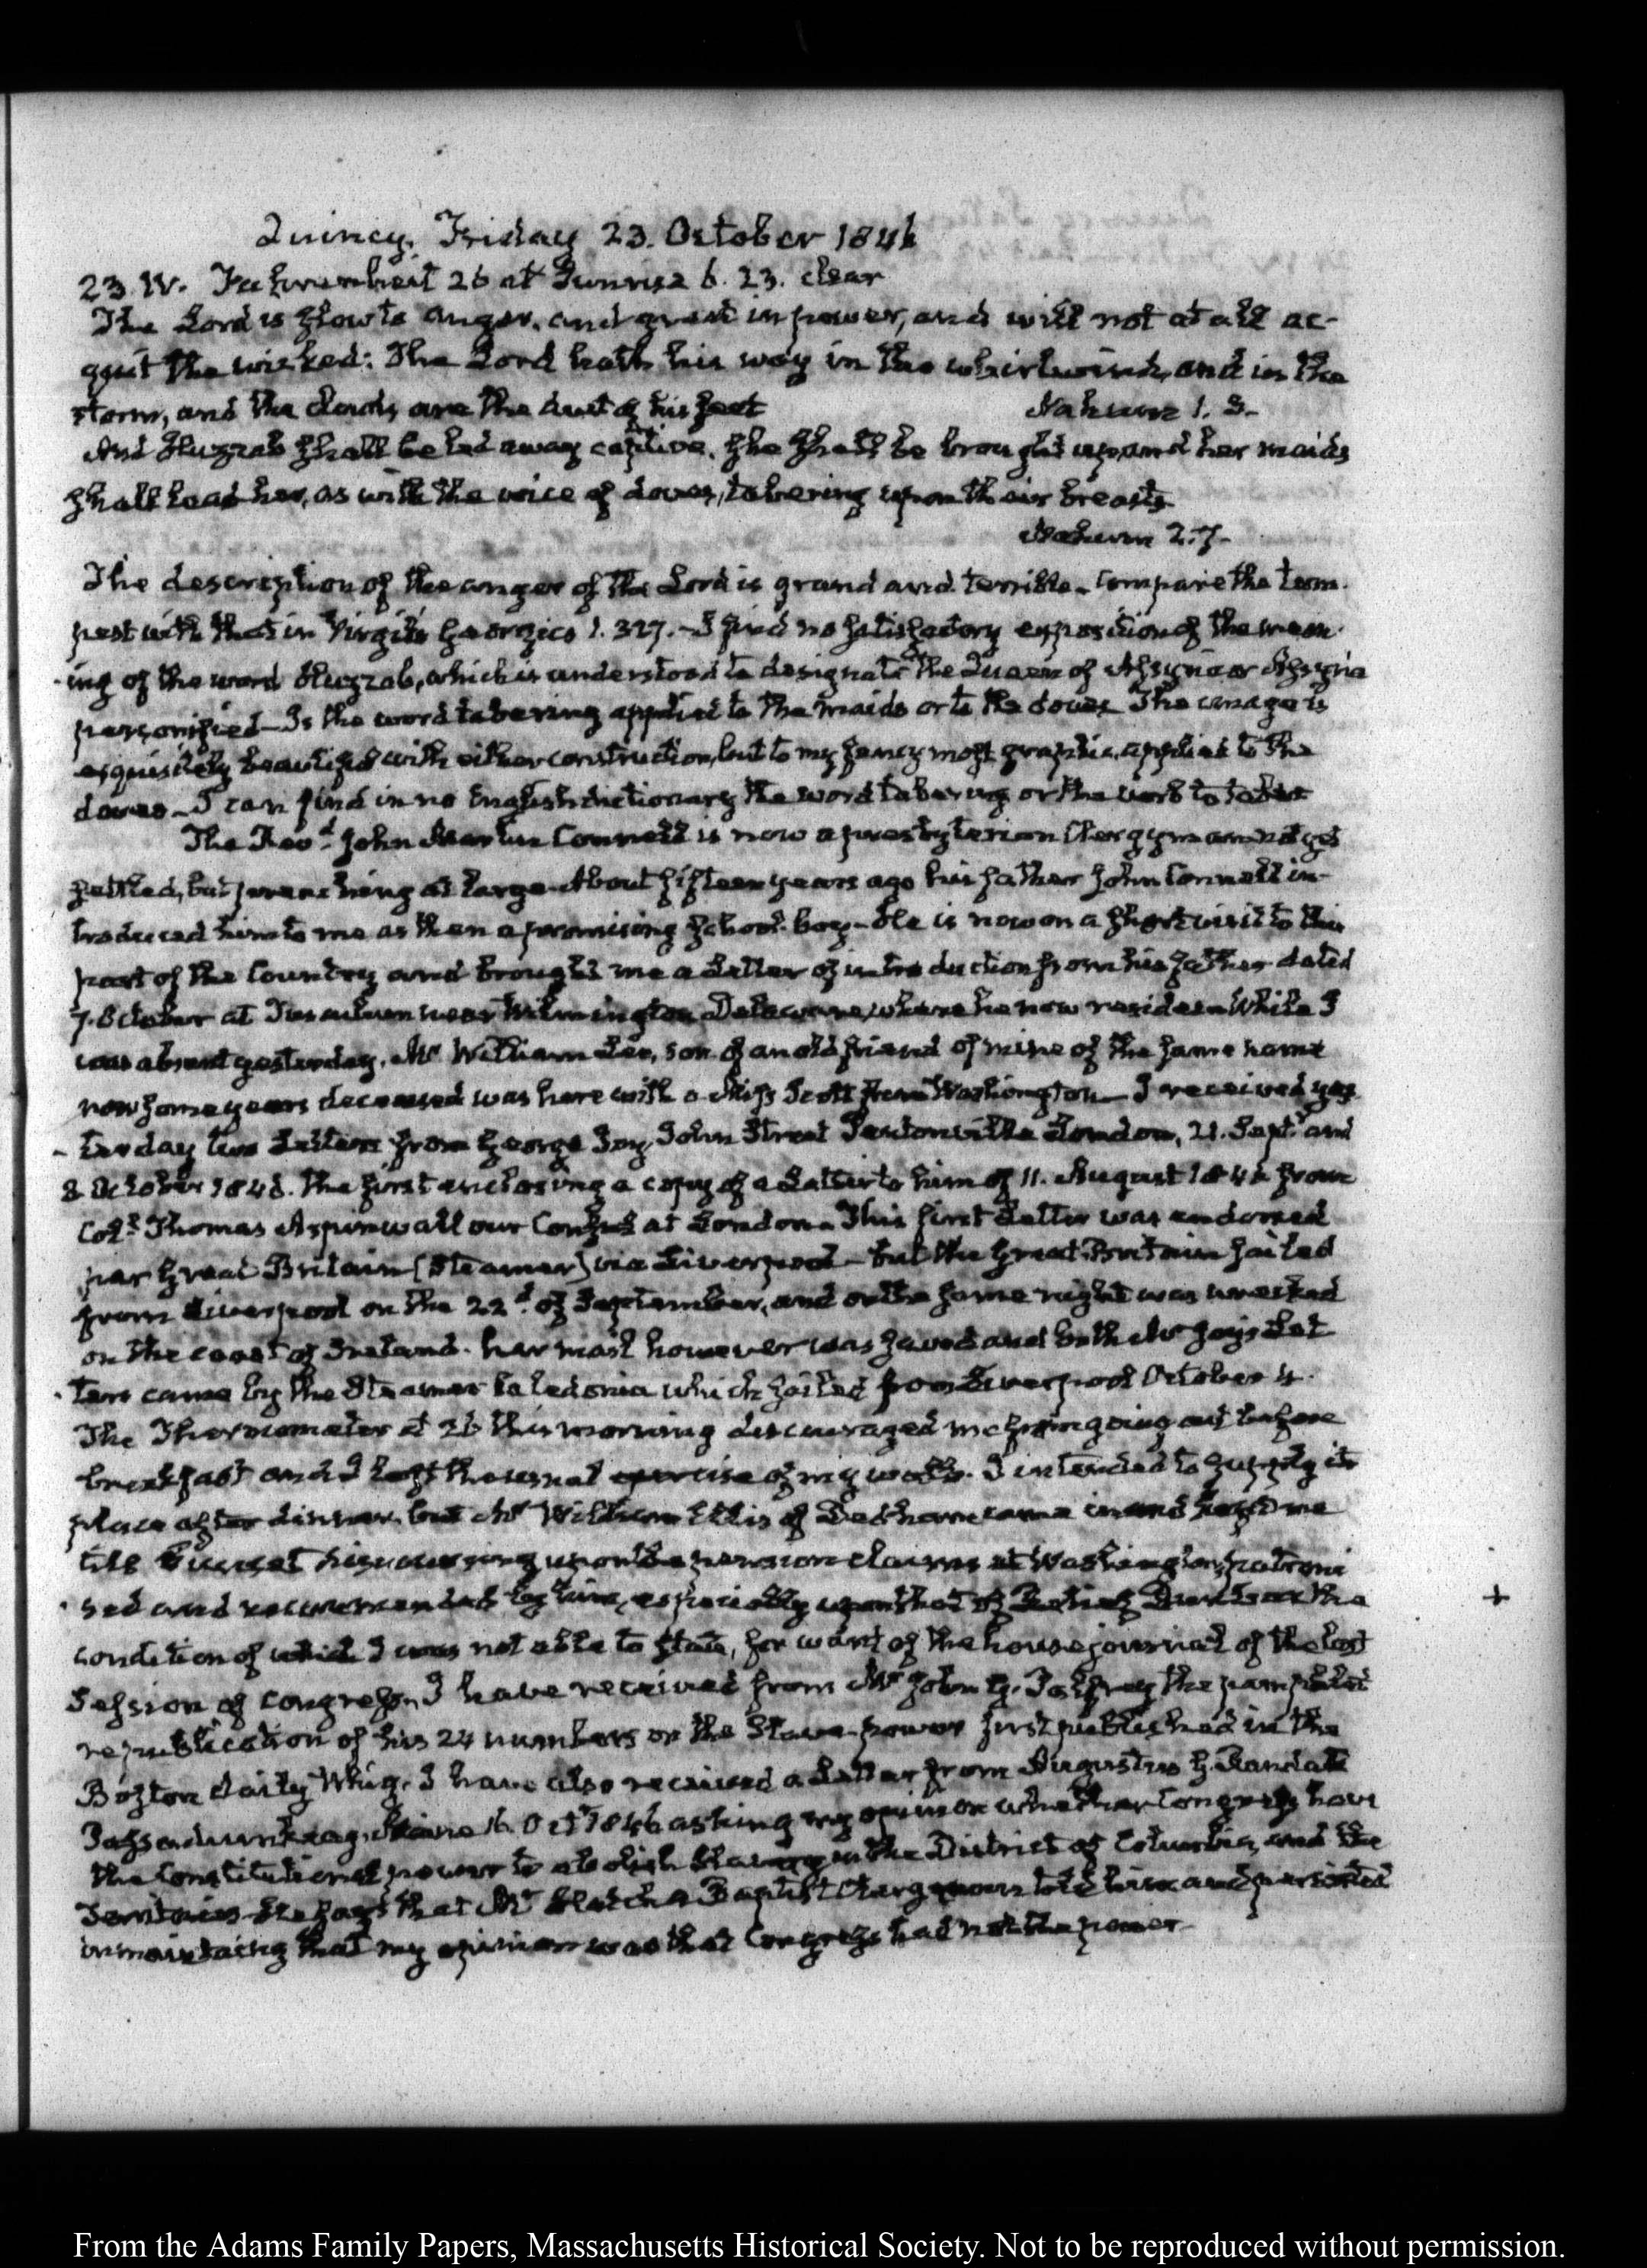 Quincy, Friday 23. October 1846
23. IV. Fahrenheit 26 at Sunrise 6. 23. clear
The Lord is slow to anger, and great in power, and will not at all ac-
quit the wicked: The Lord hath his way in the whirlwind, and in the
storm, and the clouds are the dust of his feet Nahum 1. 3.
And Huzzab shall be led away captive, she shall be brought up, and her maids
shall lead her, as with the voice of doves, tabering upon their breasts
Nahum 2. 7.
The description of the anger of the Lord is grand and terrible. Compare the tem-
pest with that in Virgil's Georgics 1. 327. I find no satisfactory exposition of the mean-
-ing of the word Huzzab, which is understood to designate the Queen of Assyria or Assyria
personified— Is the word tabering applied to the maids or to the doves The image is
exquisitely beautiful with either construction, but to my fancy most graphic, applied to the
doves— I can find in no English dictionary the word tabering or the verb to taber
The Revd. John Martin Connell is now a presbyterian Clergyman not yet
settled, but preaching at large. About fifteen years ago his father John Connell in-
troduced him to me as then a promising school-boy— He is now on a short visit to this
part of the Country and brought me a Letter of introduction from his father dated
7. October at near Wilmington Delaware, where he now resides— While I
was absent yesterday, Mr William Lee, son of an old friend of mine of the same name
now some years deceased was here with a Miss Scott from Washington— I received yes-
-terday two Letters from George Joy, John Street Pentonville London, 21. Septr. and
2 October 1846. The first enclosing a copy of a Letter to him of 11. August 1846 from
Col. Thomas Aspinwall our Consul at London. This first Letter was endorsed
per Great Britain (Steamer) via Liverpool— But the Great Britain sailed
from Liverpool on the 22d. of September, and on the same night was wrecked
on the coast of Ireland. her mail however was saved and both Mr Joy's Let-
-ters came by the Steamer Caledonia which sailed from Liverpool October 4.
The Thermometer at 26 this morning discouraged me from going out before
breakfast and I lost the usual exercise of my walk. I intended to supply its
place after dinner, but Mr William Ellis of Dedham came in and kept me
till Sunset discoursing upon the pension claims at Washington, patroni-
-sed and recommended by him, especially upon that of the
condition of which I was not able to state, for want of the house journal of the last
Session of Congress. I have received from Mr John G. Palfrey the pamphlet
republication of his 24 numbers on the Slave-power first published in the
Boston daily Whig. I have also received a Letter from Augustus F. Randall
Passadumkeag, Maine 16. Oct. 1846 asking my opinion whether Congress have
the Constitutional power to abolish Slavery in the District of Columbia, and the
Territories He says that Mr Hatch a Baptist Clergyman told him and persisted
in maintaining that my opinion was that Congress had not the power
+
From the Adams Family Papers, Massachusetts Historical Society. Not to be reproduced without permission.